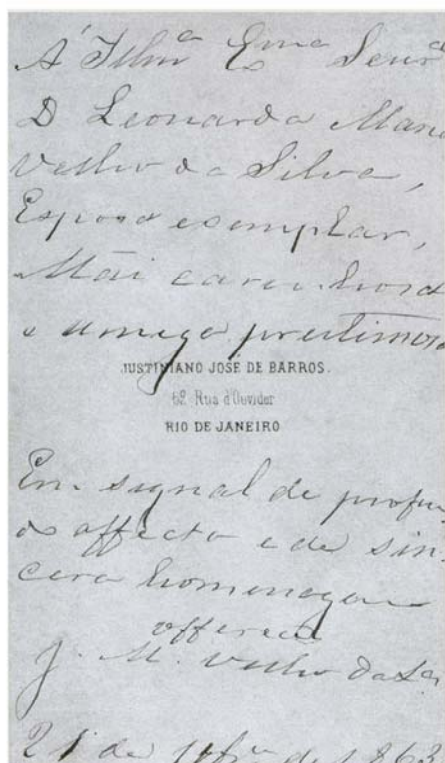 Á Illmª Exmª Senrª
D Leonarda Maria
Velho da Silva,
Esposa exemplar,
Mãi carinhosa
e amiga prestimosa
JUSTINIANO JOSÉ DE BARROS.
62 Rua d'Ouvidor
RIO DE JANEIRO
Em signal de profun
do affecto e de sin-
cera homenagem
offerece
J. M. Velho da Sª
21 de de 1863